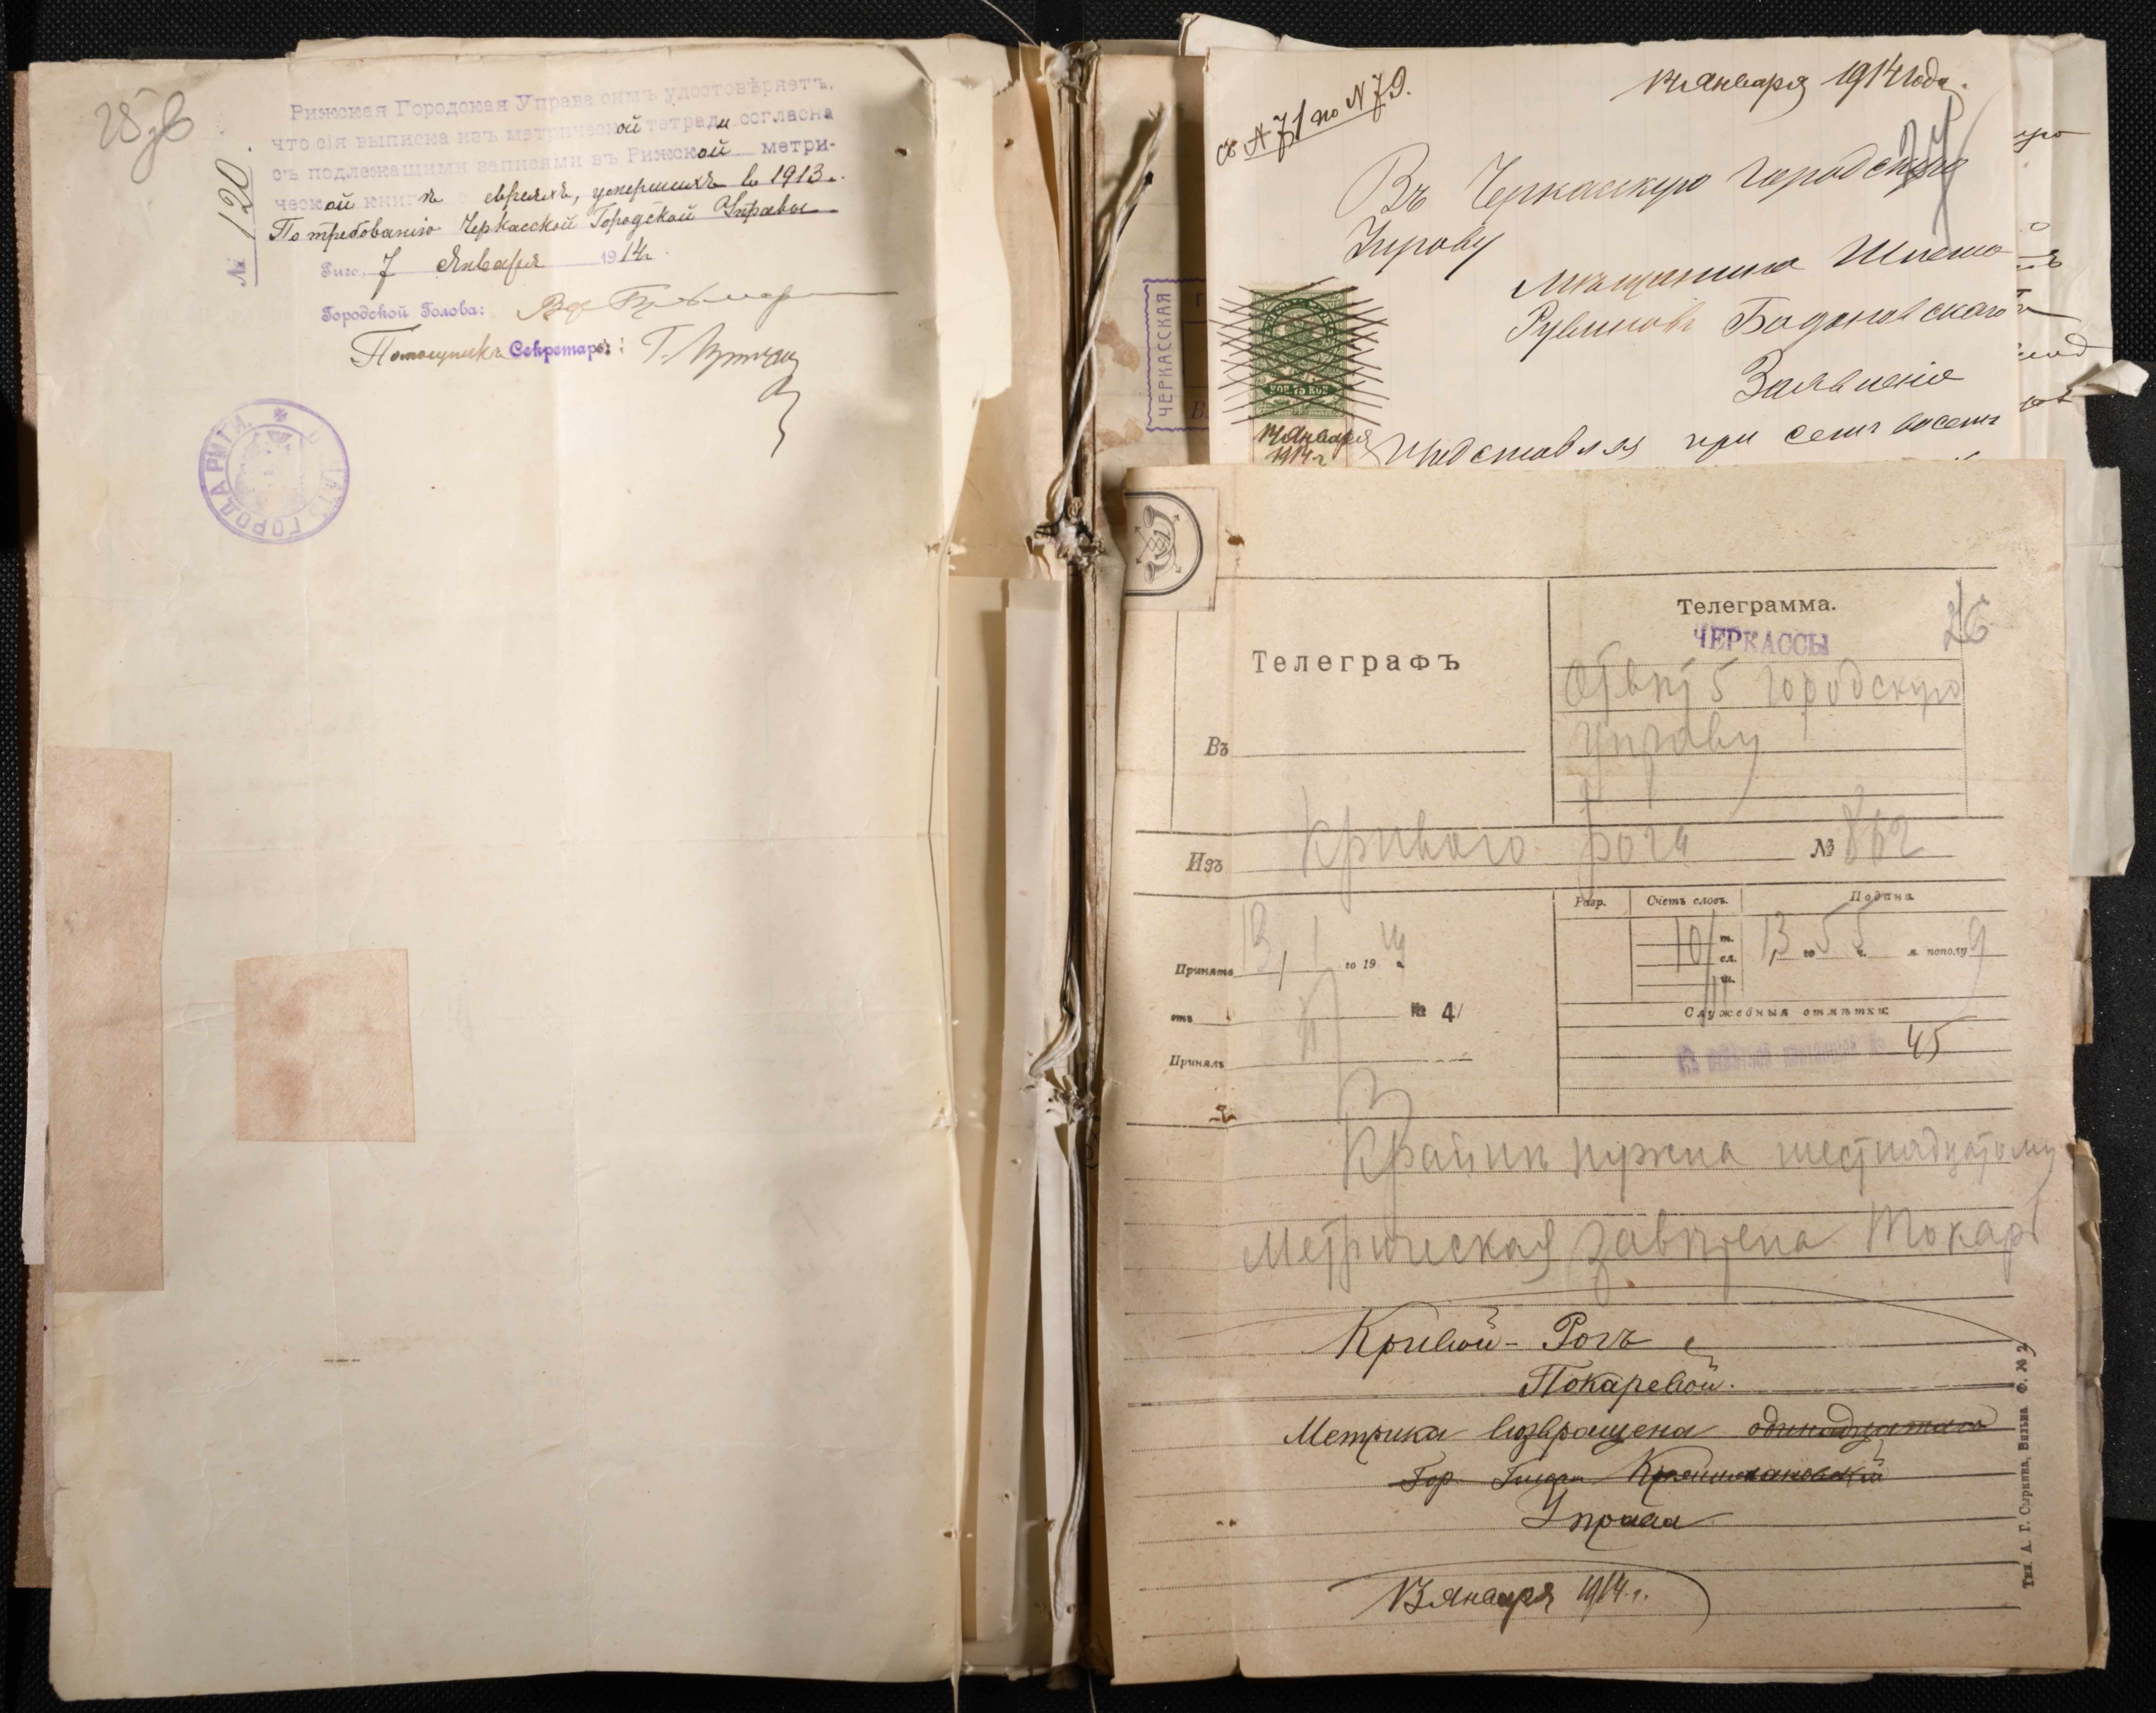 25 об
№ 120.
Рижская Городская Управа симъ удостовѣряетъ,
что сія выписка изъ метрической тетради согласна
съ подлежащими записями въ Рижской метри-
ческой книгѣ о евреяхъ, умершихъ въ 1913 г.
По требованію Черкасской Городской Управы.
Рига, 7 Января 1914 г.
Городской Голова:
Помощникъ Секретаря:
ГОРОДА РИГИ
съ № 71 по № 79.
14 Января 1914 года.
27
Въ Черкасскую городскую
Управу
Мѣщанина
Рувинова
Заявленіе
Представляя при семъ восемь
КОП 75 КОП
14 Января
1914 г.
ЧЕРКАССКАЯ
Телеграфъ
Въ
Телеграмма.
ЧЕРКАССЫ
26
Отвѣт 5 городскую
управу
Изъ Кривого рога № 862
Разр.
Счетъ словъ.
Подана
Принята 13 / 1 го 1914 г.
10 т.
сл.
ш.
13 го 55 ч. м. пополу
отъ № 4/
Принялъ
Служебныя отмѣтки:
45
Крайнѣ нужна шестнадцатому
Метрическая завѣрена Токарь
Кривой-Рогъ
Токаревой.
Метрика возвращена одинадцатаго
Гор. Голова
Управа
13 января 1914 г.
Тип. А. Г. Сыркина, Вильна Ф. № 2